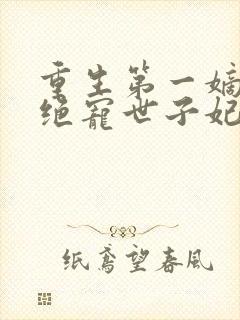 重生第一嫡
绝宠世子妃
纸鸢望春风